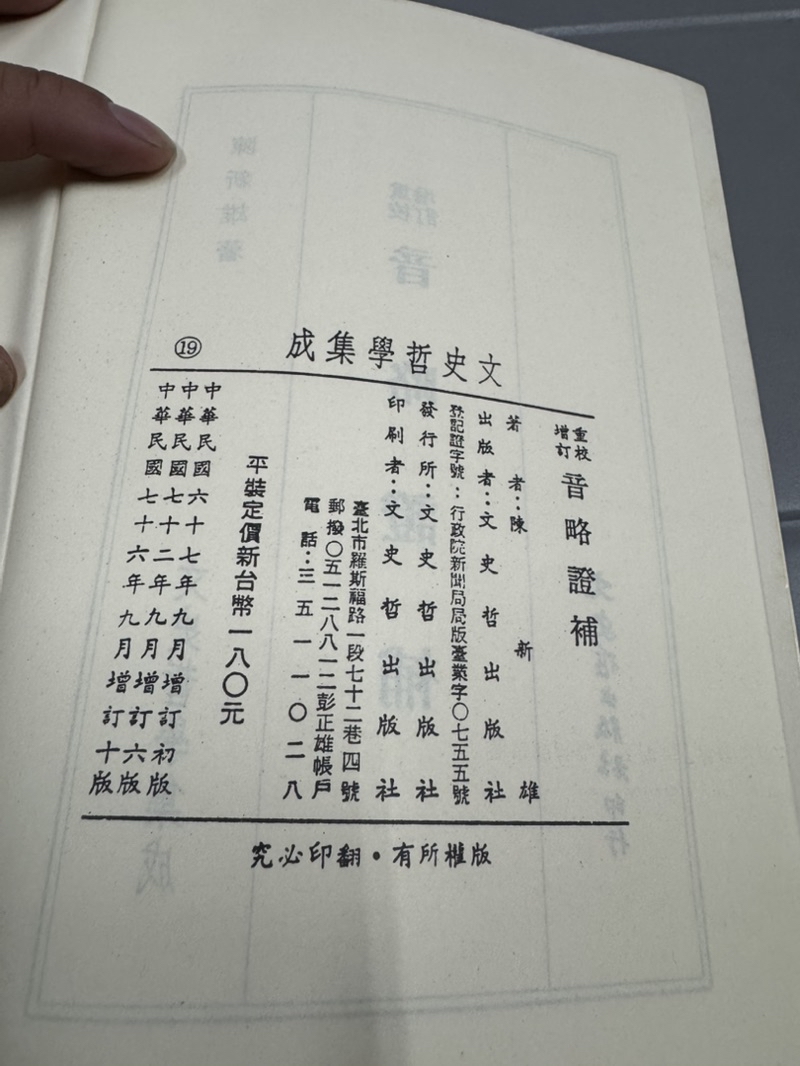 文史哲學集成 ⑲
重校增訂 音略證補
著者：陳新雄
出版者：文史哲出版社
登記證字號：行政院新聞局局版臺業字〇七五五號
發行所：文史哲出版社
印刷者：文史哲出版社
臺北市羅斯福路一段七十二巷四號
郵撥〇五一二八八一二彭正雄帳戶
電話：三五一一〇二八
平裝定價新台幣一八〇元
中華民國六十七年九月增訂初版
中華民國七十二年九月增訂六版
中華民國七十六年九月增訂十版
版權所有・翻印必究